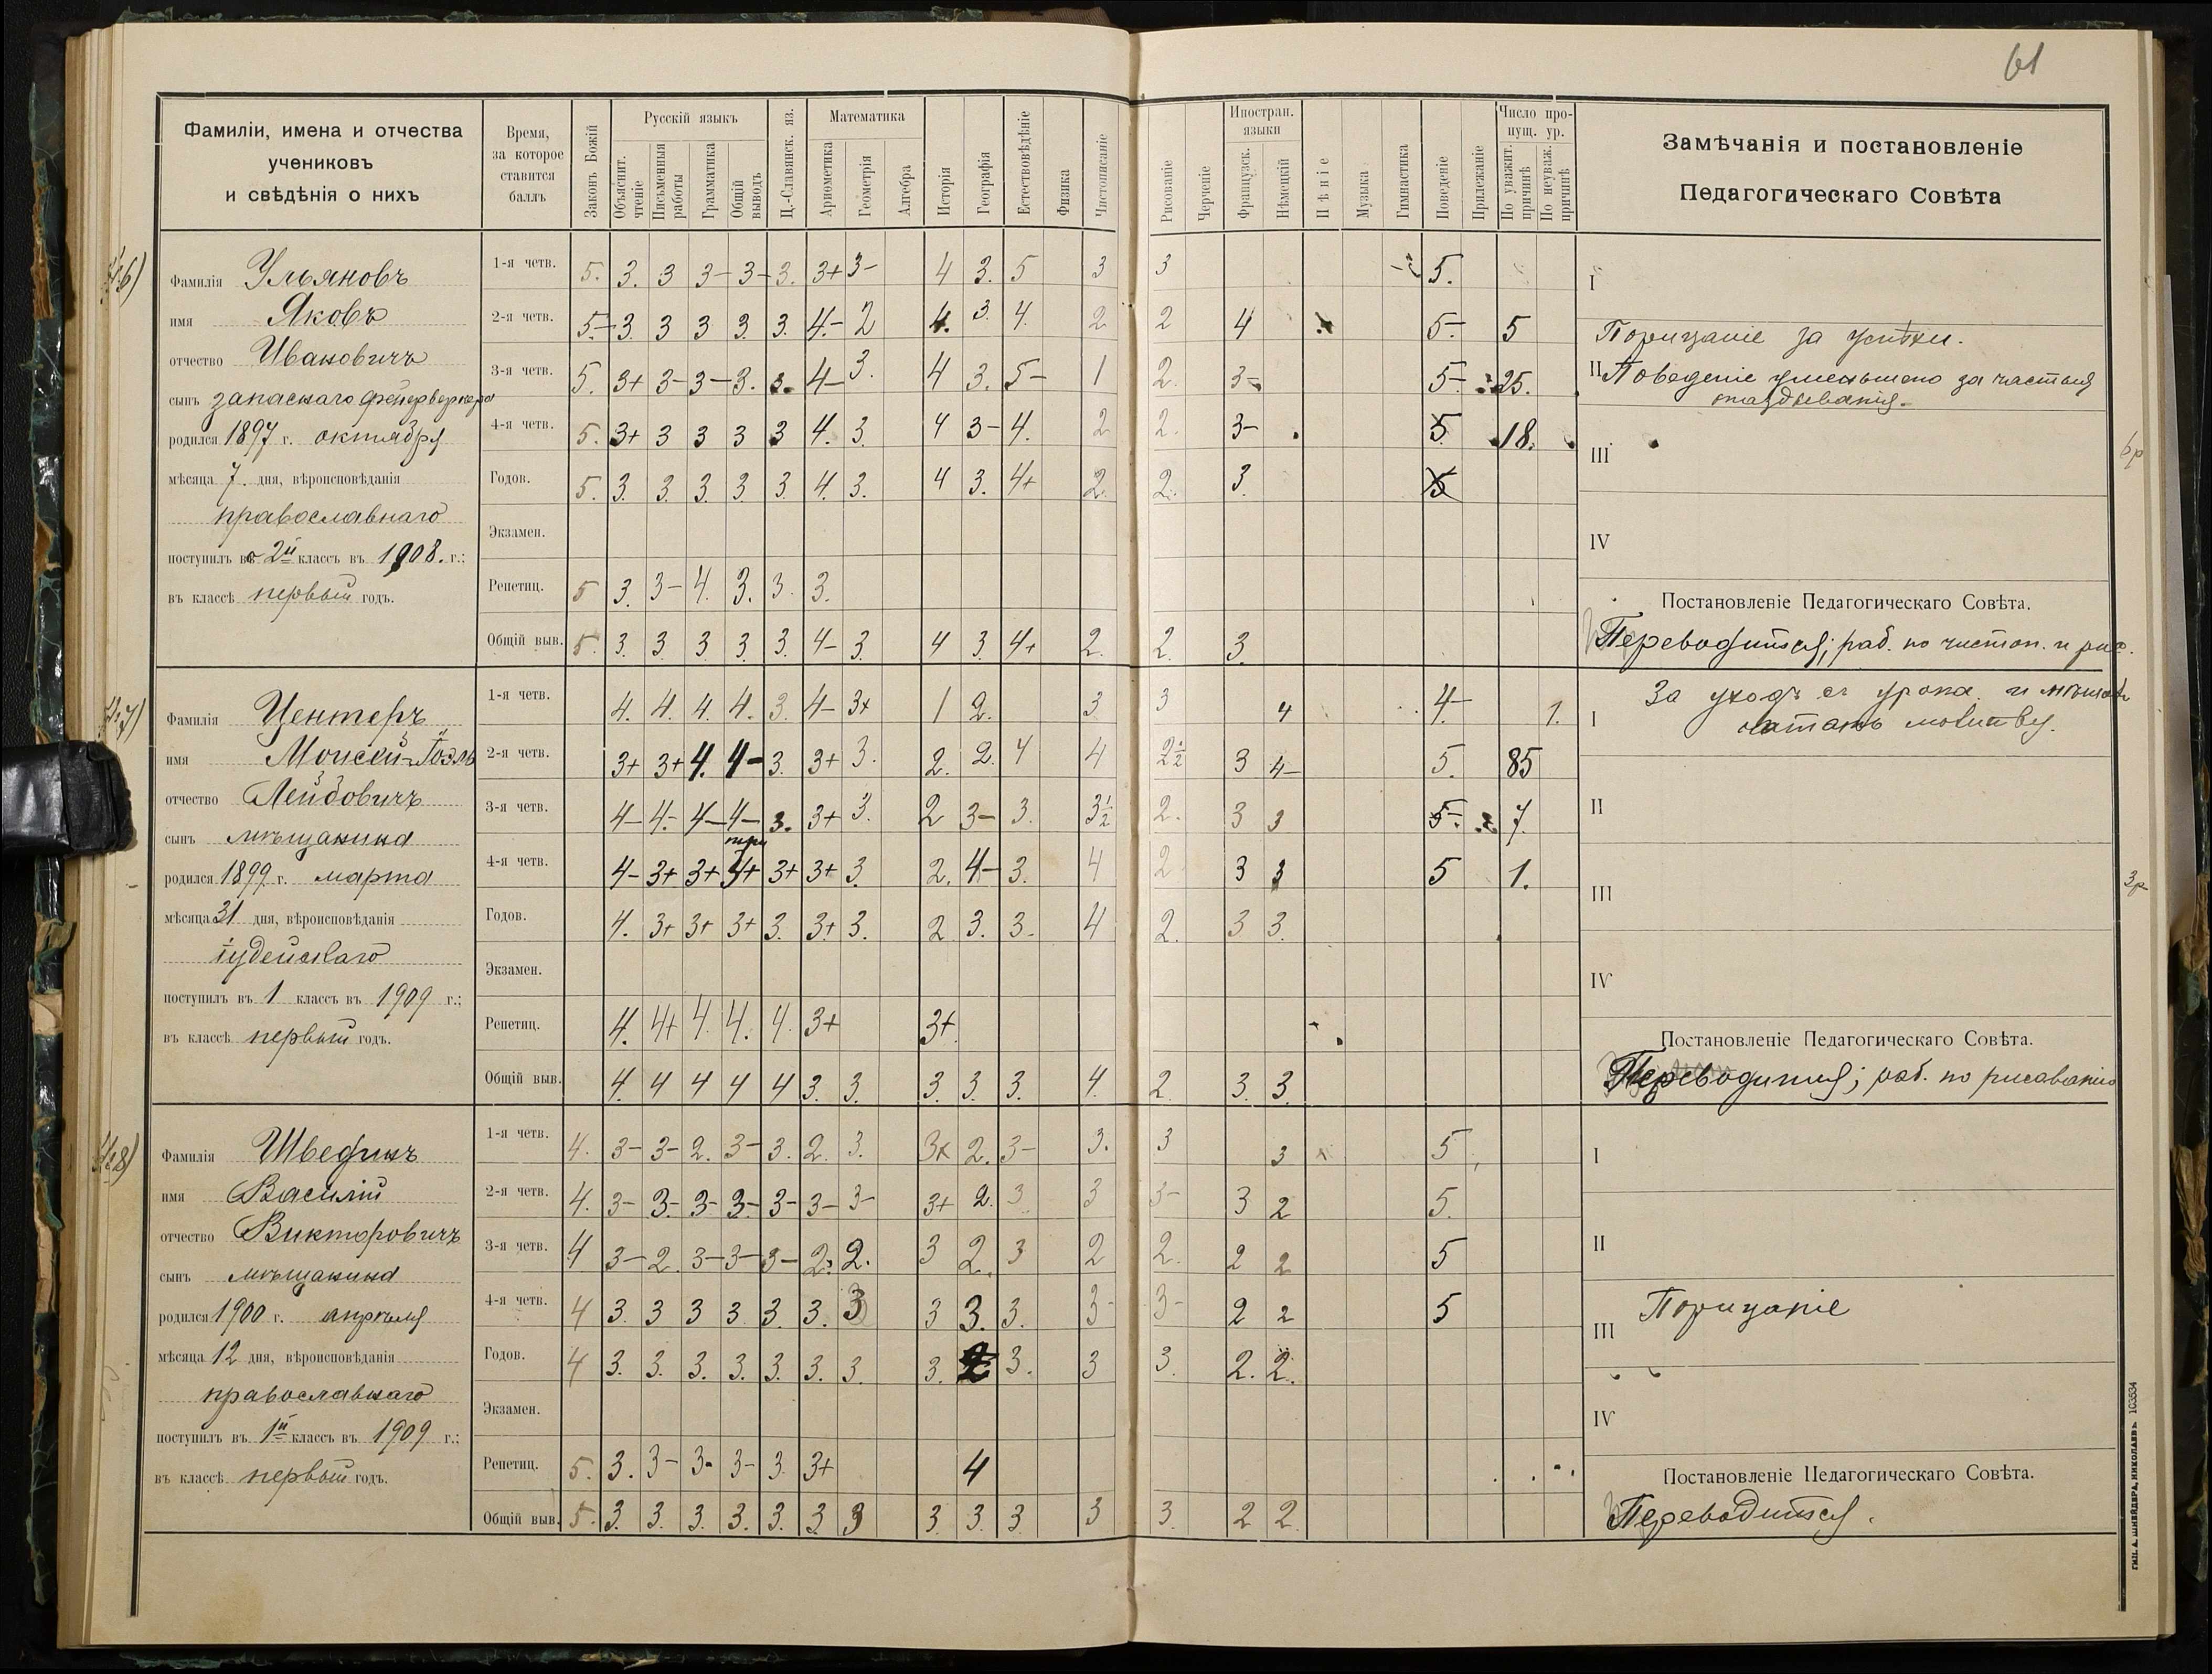 61
Фамиліи, имена и отчества
учениковъ
и свѣдѣнія о нихъ
Время,
за которое
ставится
баллъ
Законъ Божій
Русскій языкъ
Объяснит. чтеніе
Письменныя работы
Грамматика
Общій выводъ
Ц.-Славянск. яз.
Математика
Ариѳметика
Геометрія
Алгебра
Исторія
Географія
Естествовѣдѣніе
Физика
Чистописаніе
Рисованіе
Черченіе
Иностран. языки
Французск.
Нѣмецкій
Пѣніе
Музыка
Гимнастика
Поведеніе
Прилежаніе
Число пропущ. ур.
По уважит. причинѣ
По неуваж. причинѣ
Замѣчанія и постановленіе
Педагогическаго Совѣта
Фамилія Ульяновъ
имя Яковъ
отчество Ивановичъ
сынъ запаснаго фейерверкера
родился 1897 г. октября
мѣсяца 7. дня, вѣроисповѣданія
православнаго
поступилъ во 2й классъ въ 1908. г.;
въ классѣ первый годъ.
1-я четв. 5. 3. 3 3- 3- 3. 3+ 3- 4 3. 5 3 3 5.
2-я четв. 5- 3 3 3 3. 3. 4- 2 4. 3. 4. 2 2 4 5- 5
3-я четв. 5. 3+ 3- 3- 3. 3. 4- 3. 4 3. 5- 1 2. 3- 5- 25.
4-я четв. 5. 3+ 3 3 3 3 4. 3. 4 3- 4. 2 2. 3- 5 18.
Годов. 5. 3. 3. 3. 3 3. 4. 3. 4 3. 4+ 2. 2. 3. 5
Экзамен.
Репетиц. 5 3. 3- 4. 3. 3. 3.
Общій выв. 5. 3. 3 3 3. 3. 4- 3. 4 3. 4+ 2. 2. 3.
I
Порицаніе за успѣхи.
II Поведеніе уменьшено за частыя
опаздыванія.
III
IV
Постановленіе Педагогическаго Совѣта.
Переводится; раб. по чистоп. и рис.
Фамилія Центеръ
имя Мойсей-Іоэль
отчество Лейбовичъ
сынъ мѣщанина
родился 1899 г. марта
мѣсяца 31 дня, вѣроисповѣданія
іудейскаго
поступилъ въ 1 классъ въ 1909 г.;
въ классѣ первый годъ.
1-я четв. 4. 4. 4. 4. 3. 4- 3+ 1 2. 3 3 4 4- 1.
2-я четв. 3+ 3+ 4. 4- 3. 3+ 3. 2. 2. 4 4 2½ 3 4- 5. 85
3-я четв. 4- 4- 4- 4- 3. 3+ 3. 2 3- 3. 3½ 2. 3 3 5- 7.
три
4-я четв. 4- 3+ 3+ 3+ 3+ 3+ 3. 2. 4- 3. 4 2 3 3 5 1.
Годов. 4. 3+ 3+ 3+ 3. 3+ 3. 2 3. 3. 4 2. 3 3.
Экзамен.
Репетиц. 4. 4+ 4. 4. 4. 3+ 3+.
Общій выв. 4. 4 4 4 4 3. 3. 3. 3. 3. 4. 2. 3. 3.
I За уходъ съ урока и
молитву.
II
III
IV
3р
Постановленіе Педагогическаго Совѣта.
Переводится; раб. по рисованію
Фамилія Швединъ
имя Василій
отчество Викторовичъ
сынъ мѣщанина
родился 1900 г. апрѣля
мѣсяца 12 дня, вѣроисповѣданія
православнаго
поступилъ въ 1й классъ въ 1909 г.;
въ классѣ первый годъ.
1-я четв. 4. 3- 3- 2. 3- 3. 2. 3. 3+ 2. 3- 3. 3 3 5
2-я четв. 4. 3- 3- 3- 3- 3- 3- 3- 3+ 2. 3 3 3- 3 2 5.
3-я четв. 4 3- 2. 3- 3- 3- 2. 2. 3 2. 3 2 2. 2 2 5
4-я четв. 4 3. 3 3 3 3. 3. 3 3 3. 3. 3- 3- 2 2 5
Годов. 4 3. 3. 3. 3. 3. 3. 3. 3. 2 3. 3 3. 2. 2.
Экзамен.
Репетиц. 5. 3. 3- 3- 3- 3. 3+ 4
Общій выв. 5. 3. 3. 3. 3. 3. 3 3 3. 3. 3 3 3. 2 2.
I
II
III Порицаніе
IV
Постановленіе Педагогическаго Совѣта.
Переводится.
тип. А. Шнейдера, Николаевъ 103534